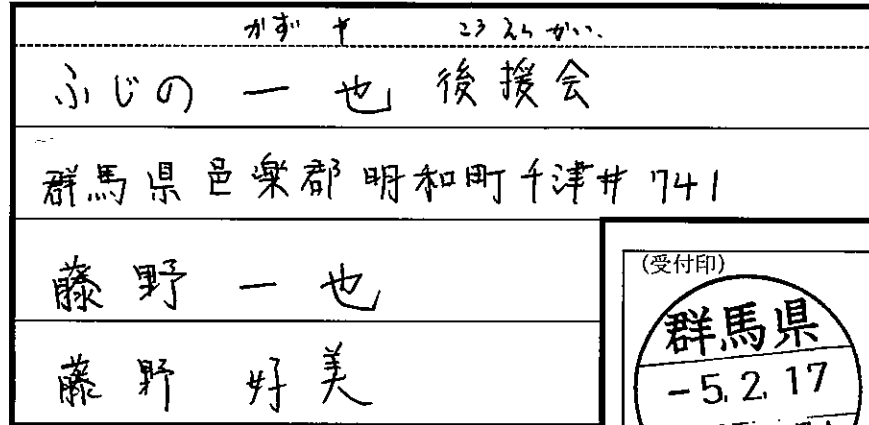 かずや こうえんかい
ふじの 一也 後援会
群馬県邑楽郡明和町千津井741
藤野 一也
藤野 好美
(受付印)
群馬県
-5.2.17